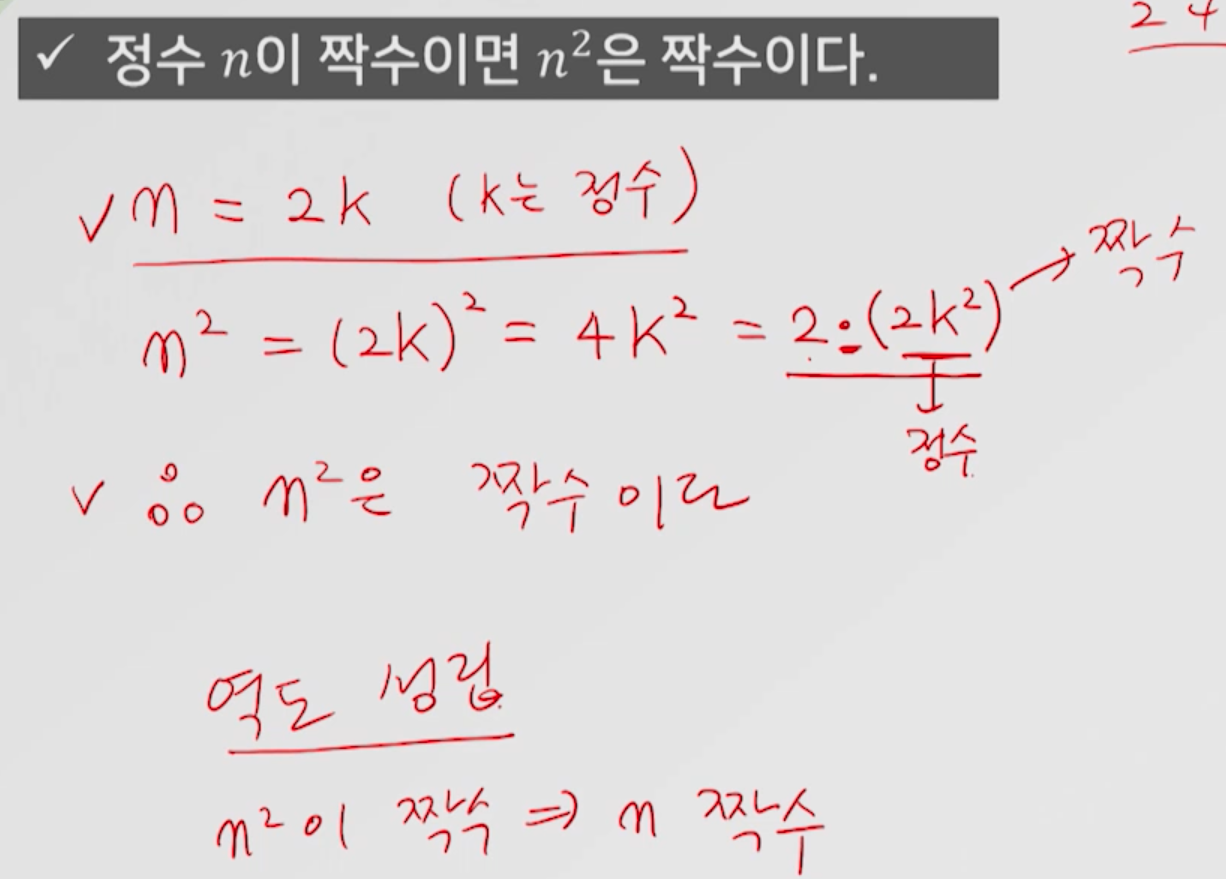 2 4
✓ 정수 n이 짝수이면 n²은 짝수이다.
✓ n = 2k (k는 정수)
n² = (2k)² = 4k² = 2·(2k²) → 짝수
↓
정수
✓ ∴ n²은 짝수이다
역도 성립
n²이 짝수 ⇒ n 짝수